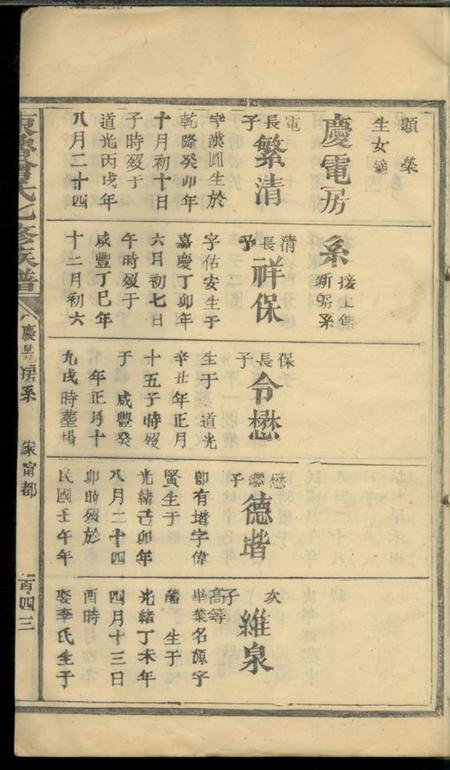 顯榮
生女適
慶電房系
接上舊
新房系
電長子
繁清
字漢圓生於
乾隆癸卯年
十月初十日
子時歿于
道光丙戌年
八月二十四
清長子
祥保
字佑安生于
嘉慶丁卯年
六月初七日
午時歿于
咸豐丁巳年
十二月初六
保長子
令懋
生于 道光
辛丑年正月
十五子時歿
于 咸豐癸
年正月十
九戌時葬場
懋繼子
德堦
即有堦字偉
賢生于
光緒己卯年
八月二十四
卯時歿於
民國壬午年
次子
維泉
高等
畢業名源字
生于
光緒丁未年
四月十三日
酉時
娶李氏生子
東魯曾氏七修族譜
慶 房系
寧都
百四三